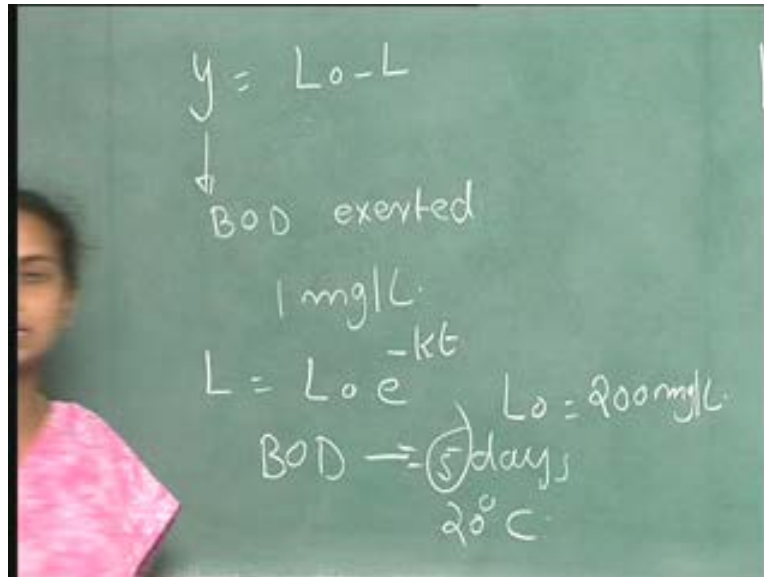 y = Lo - L
↓
BOD exerted
1 mg/L.
L = Lo e^-kt
Lo = 200mg/L.
BOD → = 5 days
20° C.